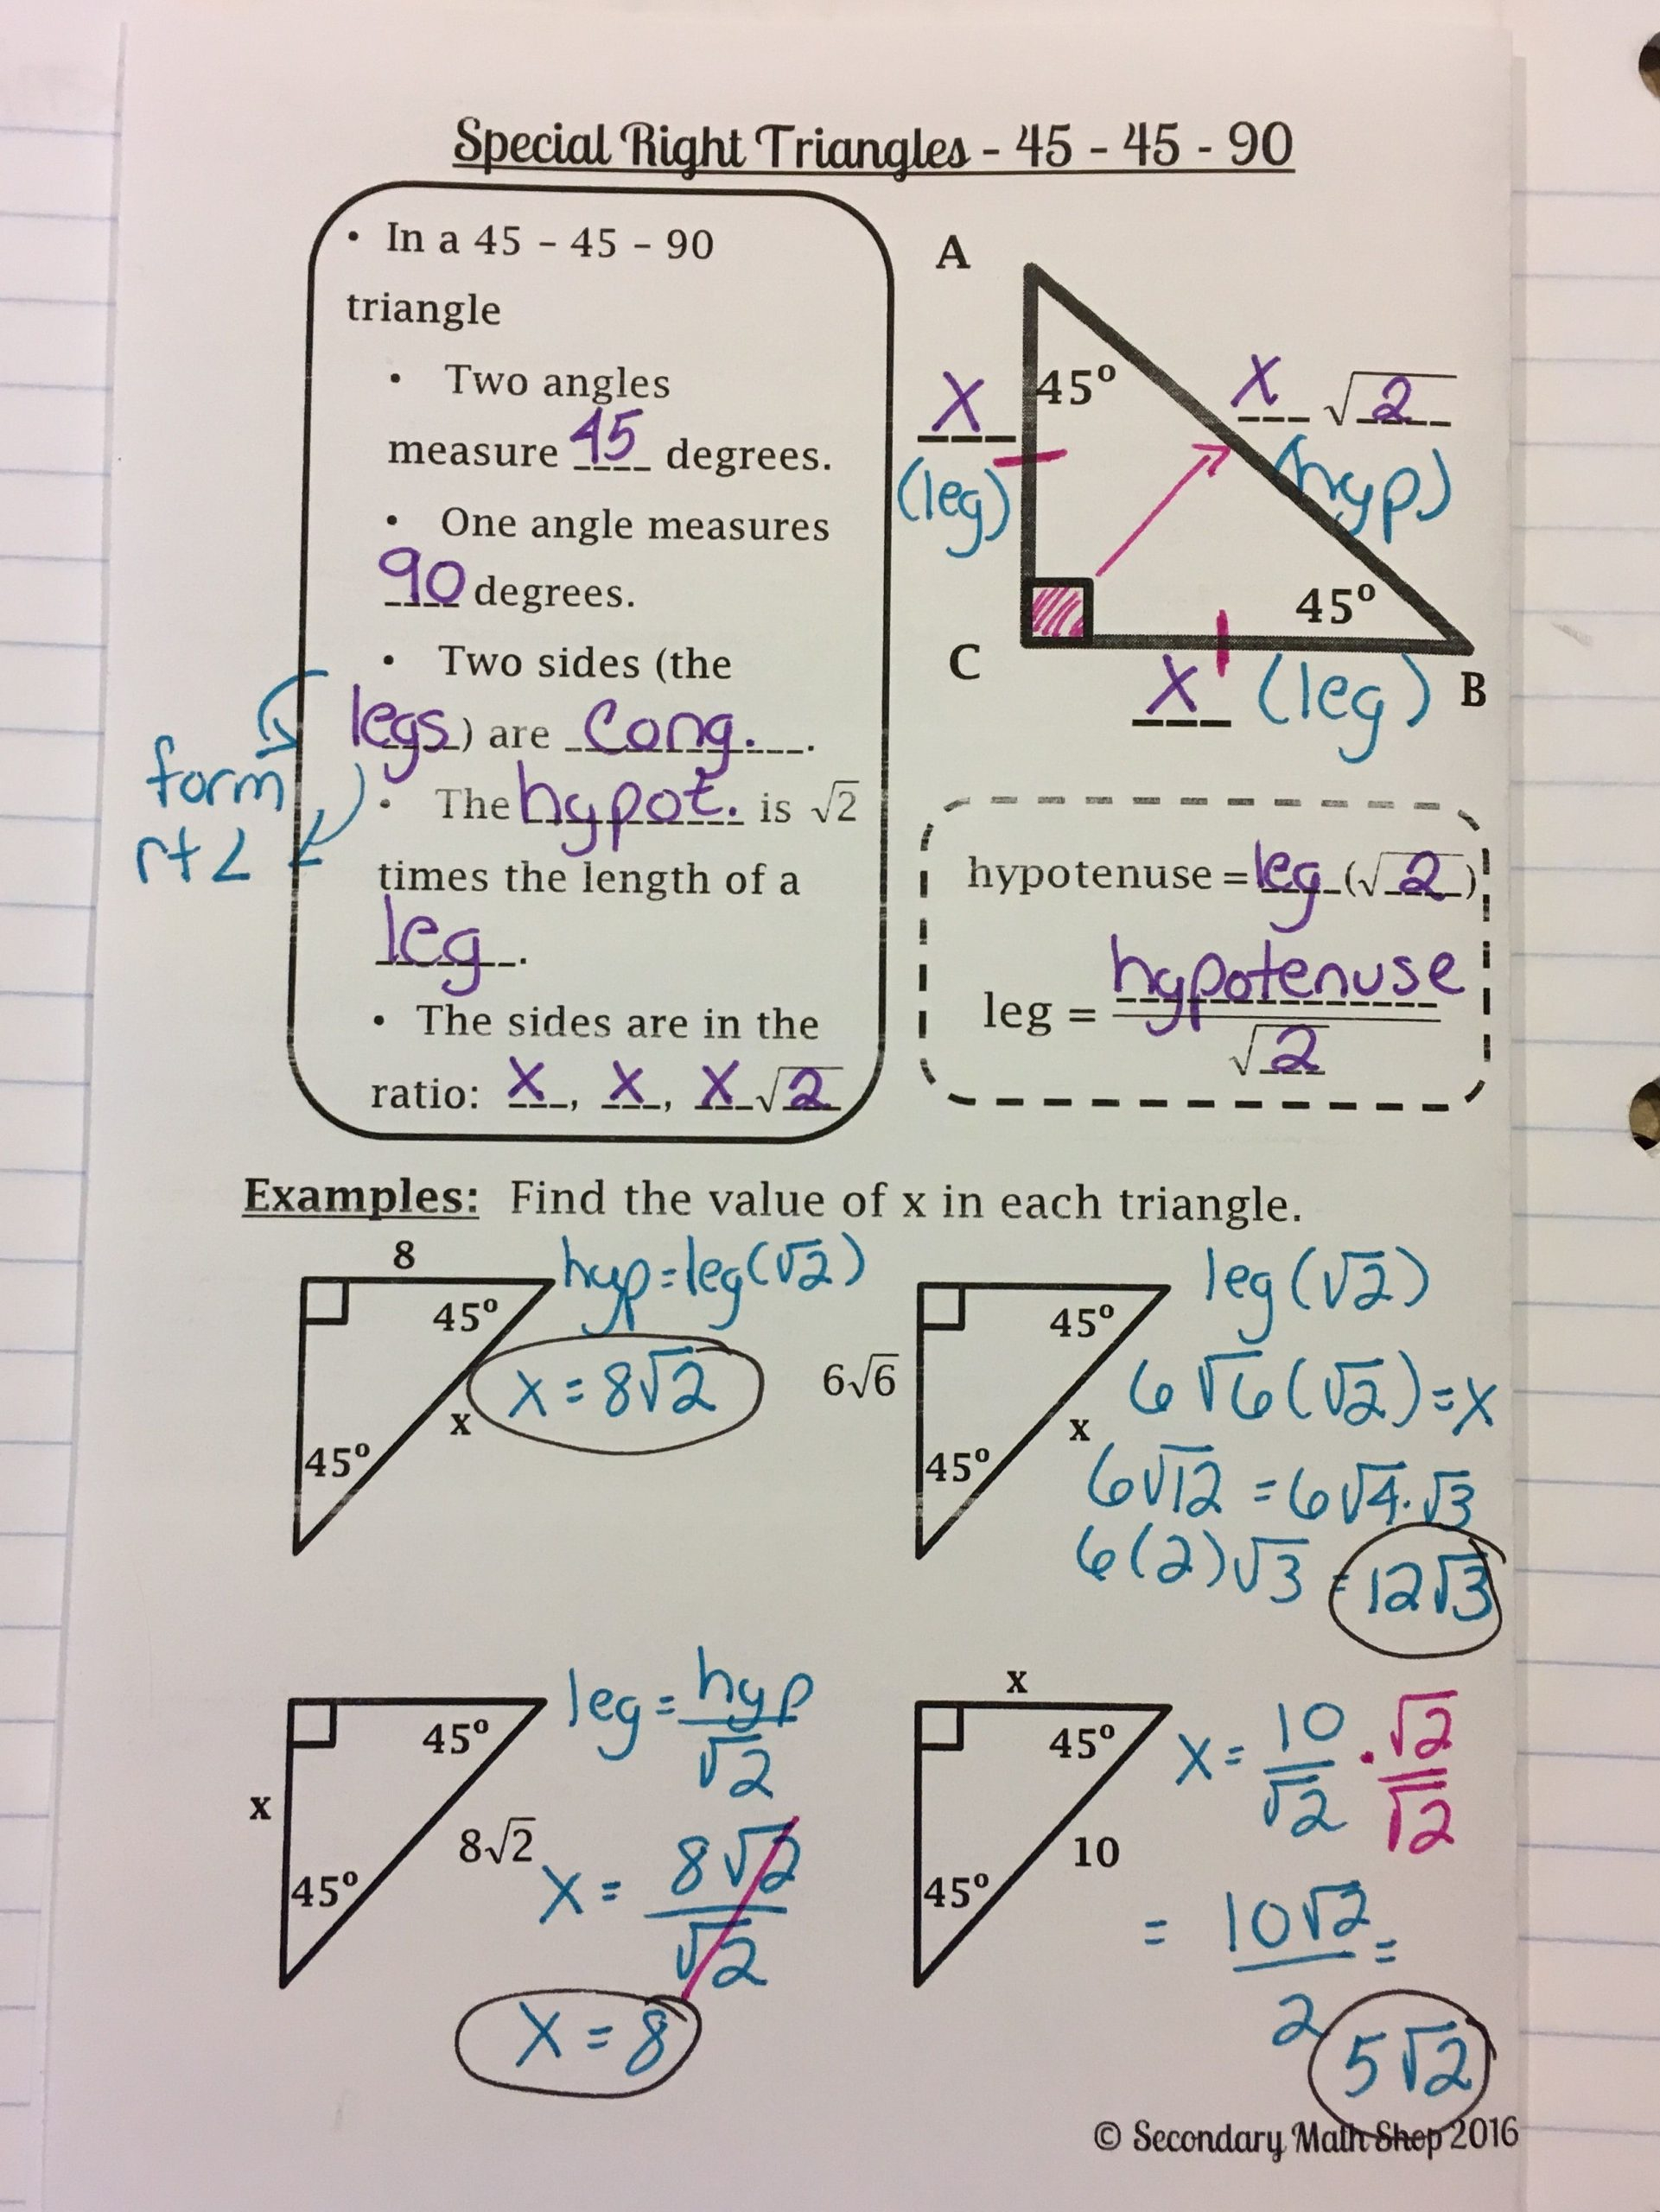 Special Right Triangles - 45 - 45 - 90
• In a 45 – 45 – 90
triangle
• Two angles
measure 45 degrees.
• One angle measures
90 degrees.
• Two sides (the
legs) are cong.
form
rt ∠
• The hypot. is √2
times the length of a
leg.
• The sides are in the
ratio: x, x, x√2
A
45°
x
(leg)
x √2
(hyp)
45°
C
x (leg)
B
hypotenuse = leg (√2)
leg = hypotenuse
√2
Examples: Find the value of x in each triangle.
8
45°
45°
x
hyp = leg(√2)
x = 8√2
6√6
45°
45°
x
leg (√2)
6√6(√2) = x
6√12 = 6√4·√3
6(2)√3 = 12√3
x
45°
45°
8√2
leg = hyp
√2
x = 8√2
√2
x = 8
x
45°
45°
10
x = 10/√2 · √2/√2
= 10√2 =
2
5√2
© Secondary Math Shop 2016